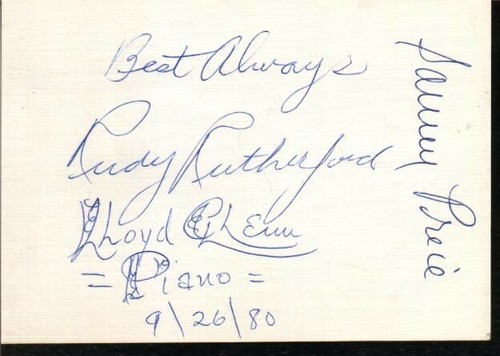 Best Always
Rudy Rutherford
Lloyd Glenn
= Piano =
9\26\80
Sammy Price